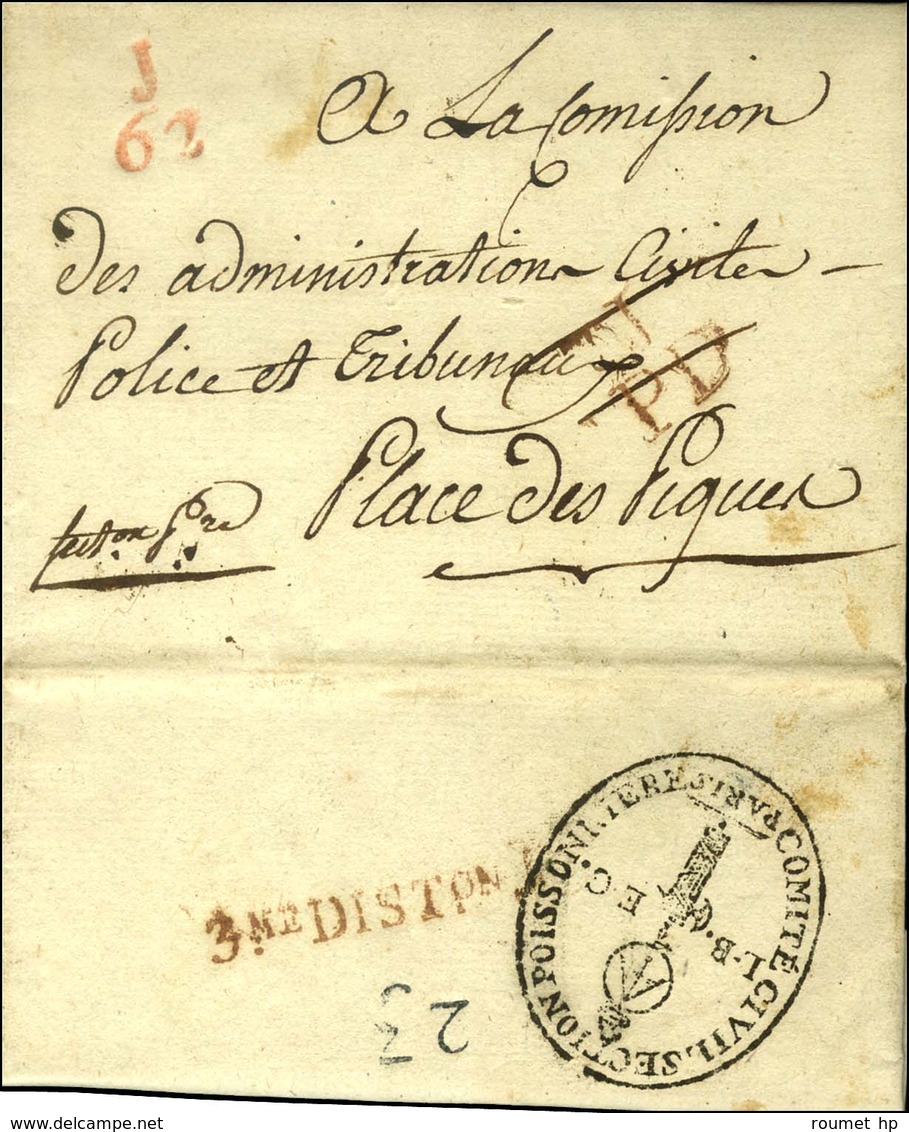 J
62
A La Comission
des administrations Civiles
Police et Tribunaux
PD
Place des Piques
sect.on P.re
3.ME DISTON
COMITÉ CIVIL SECTION POISSONNIERE PARIS
E C.
L-B.
23
roumet hp